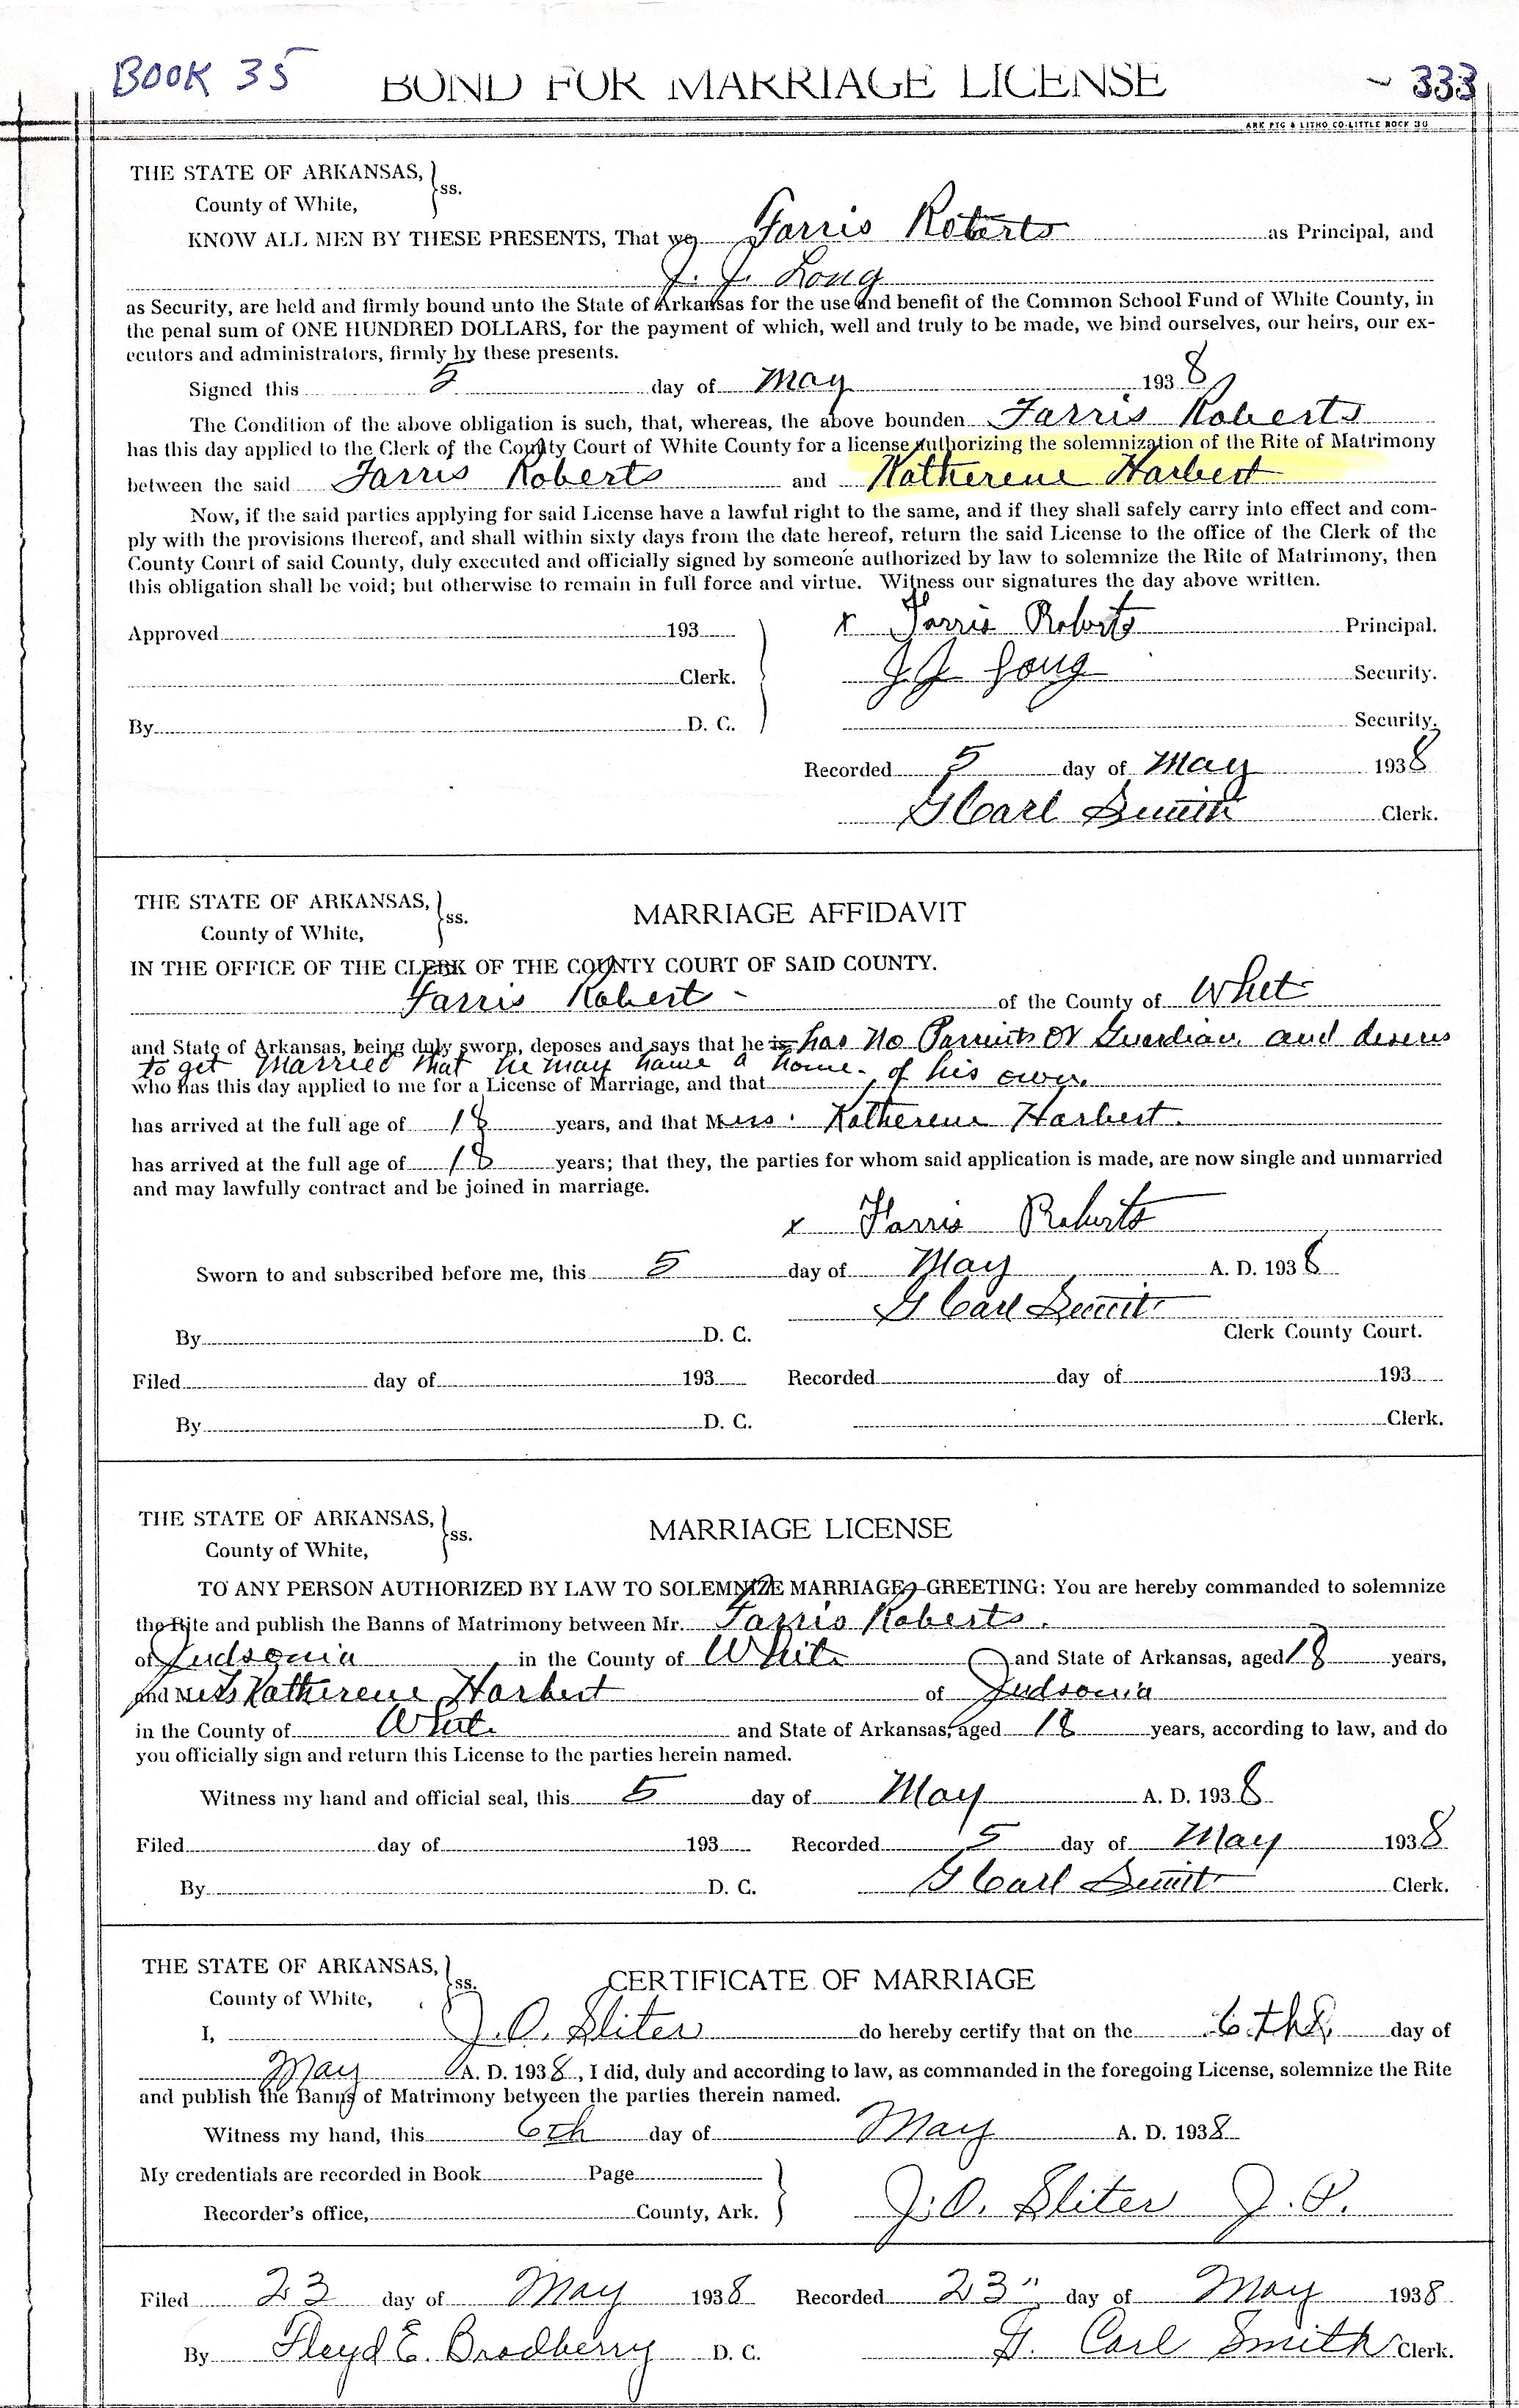 BOOK 35 BOND FOR MARRIAGE LICENSE 333
ARK PTG & LITHO CO-LITTLE ROCK
THE STATE OF ARKANSAS, ss.
County of White,
KNOW ALL MEN BY THESE PRESENTS, That we Farris Roberts as Principal, and
J. J. Long
as Security, are held and firmly bound unto the State of Arkansas for the use and benefit of the Common School Fund of White County, in
the penal sum of ONE HUNDRED DOLLARS, for the payment of which, well and truly to be made, we bind ourselves, our heirs, our ex-
ecutors and administrators, firmly by these presents.
Signed this 5 day of May 1938
The Condition of the above obligation is such, that, whereas, the above bounden Farris Roberts
has this day applied to the Clerk of the County Court of White County for a license authorizing the solemnization of the Rite of Matrimony
between the said Farris Roberts and Katherene Harbert
Now, if the said parties applying for said License have a lawful right to the same, and if they shall safely carry into effect and com-
ply with the provisions thereof, and shall within sixty days from the date hereof, return the said License to the office of the Clerk of the
County Court of said County, duly executed and officially signed by someone authorized by law to solemnize the Rite of Matrimony, then
this obligation shall be void; but otherwise to remain in full force and virtue. Witness our signatures the day above written.
Approved 193 x Farris Roberts Principal.
Clerk. J J Long Security.
By D. C. Security.
Recorded 5 day of May 1938
G Carl Smith Clerk.
THE STATE OF ARKANSAS, ss. MARRIAGE AFFIDAVIT
County of White,
IN THE OFFICE OF THE CLERK OF THE COUNTY COURT OF SAID COUNTY.
Farris Robert - of the County of Whit
and State of Arkansas, being duly sworn, deposes and says that he is has no Parrents or Guardian and desires
to get married that he may have a home of his own.
who has this day applied to me for a License of Marriage, and that
has arrived at the full age of 18 years, and that Miss. Katherene Harbert.
has arrived at the full age of 18 years; that they, the parties for whom said application is made, are now single and unmarried
and may lawfully contract and be joined in marriage.
x Farris Roberts
Sworn to and subscribed before me, this 5 day of May A. D. 1938
G Carl Smith
By D. C. Clerk County Court.
Filed day of 193 Recorded day of 193
By D. C. Clerk.
THE STATE OF ARKANSAS, ss. MARRIAGE LICENSE
County of White,
TO ANY PERSON AUTHORIZED BY LAW TO SOLEMNIZE MARRIAGE—GREETING: You are hereby commanded to solemnize
the Rite and publish the Banns of Matrimony between Mr. Farris Roberts.
of Judsonia in the County of White and State of Arkansas, aged 18 years,
and Miss Katherene Harbert of Judsonia
in the County of Whit and State of Arkansas, aged 18 years, according to law, and do
you officially sign and return this License to the parties herein named.
Witness my hand and official seal, this 5 day of May A. D. 1938
Filed day of 193 Recorded 5 day of May 1938
By D. C. G Carl Smith Clerk.
THE STATE OF ARKANSAS, ss. CERTIFICATE OF MARRIAGE
County of White,
I, J. O. Sliter do hereby certify that on the 6th day of
May A. D. 1938, I did, duly and according to law, as commanded in the foregoing License, solemnize the Rite
and publish the Banns of Matrimony between the parties therein named.
Witness my hand, this 6th day of May A. D. 1938
My credentials are recorded in Book Page
Recorder's office, County, Ark. J. O. Sliter J. P.
Filed 23 day of May 1938 Recorded 23" day of May 1938
By Floyd E. Bradberry D. C. G. Carl Smith Clerk.